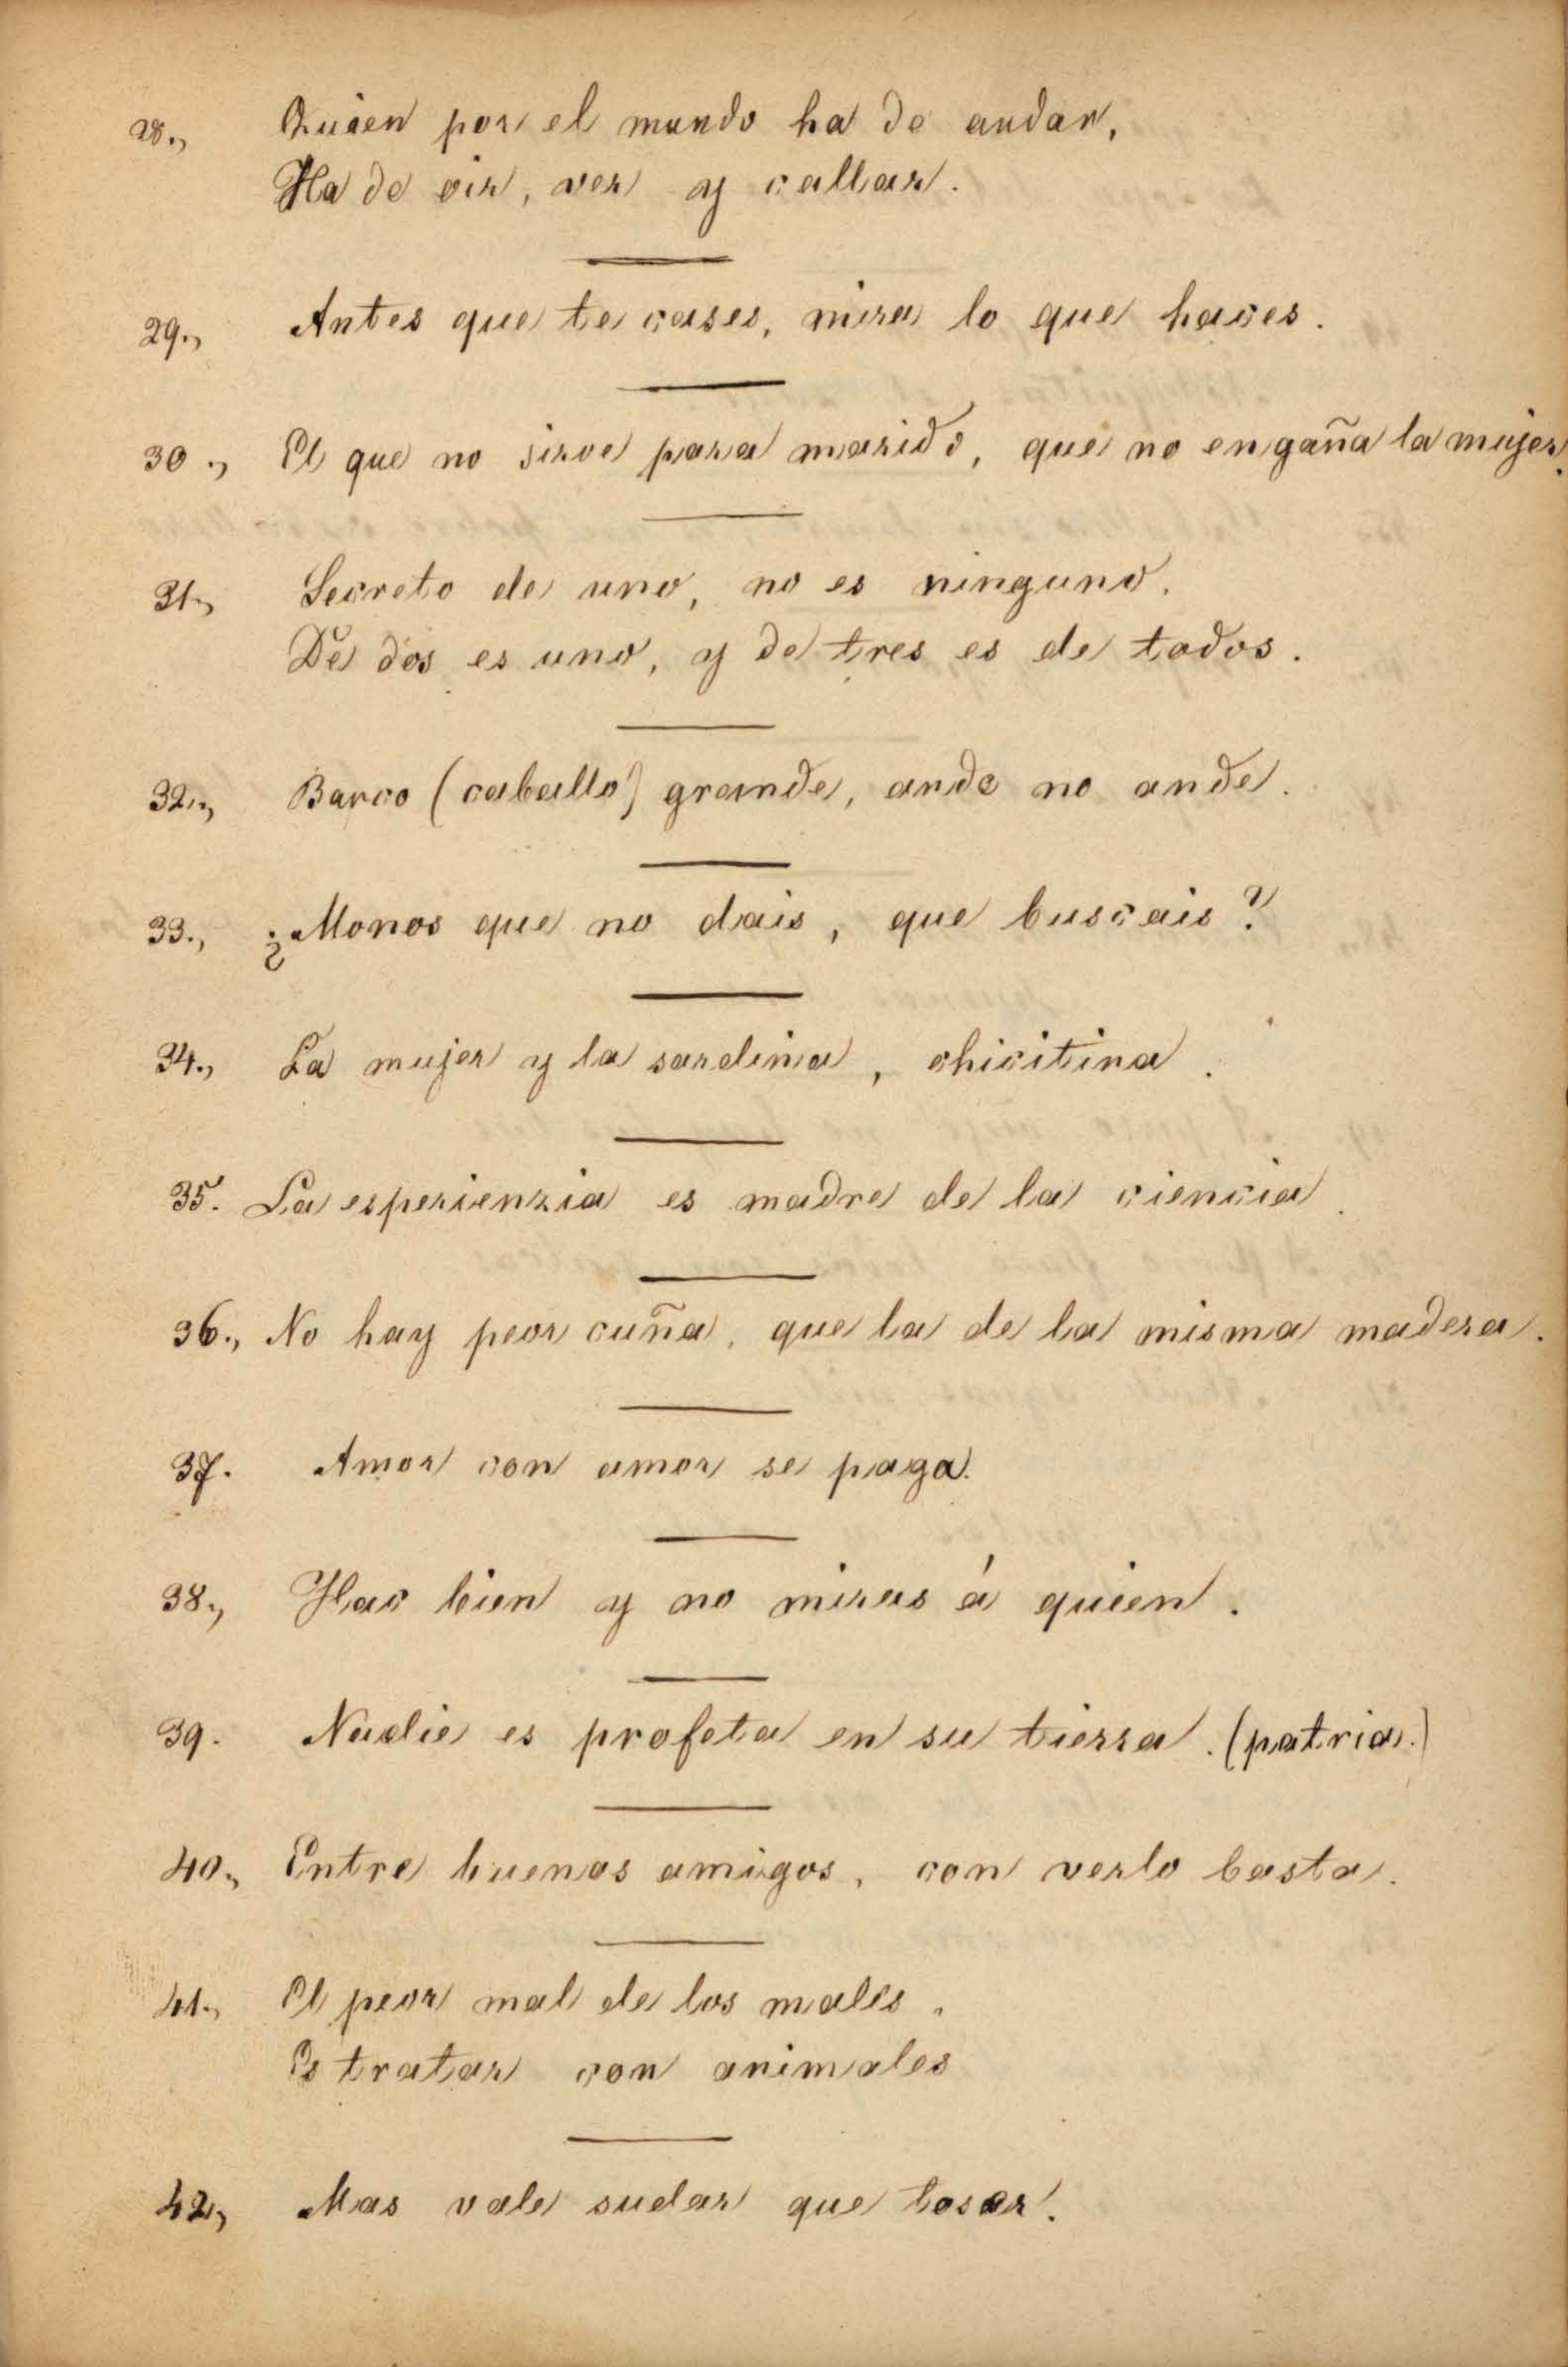 28., Quien por el mundo ha de andar,
Ha de oir, ver y callar.
29., Antes que te cases, mira lo que haces.
30., El que no sirve para marido, que no engaña la mujer.
31., Secreto de uno, no es ninguno.
De dos es uno, y de tres es de todos.
32., Barco (caballo) grande, ande no ande.
33., ¿Monos que no dais, que buscais?
34., La mujer y la sardina, chicitina.
35. La esperienzia es madre de la ciencia.
36., No hay peor cuña, que la de la misma madera.
37. Amor con amor se paga.
38., Hac bien y no miras á quien.
39. Nadie es profeta en su tierra. (patria.)
40., Entre buenos amigos, con verlo basta.
41., El peor mal de los males,
Es tratar con animales
42., Mas vale sudar que toser.